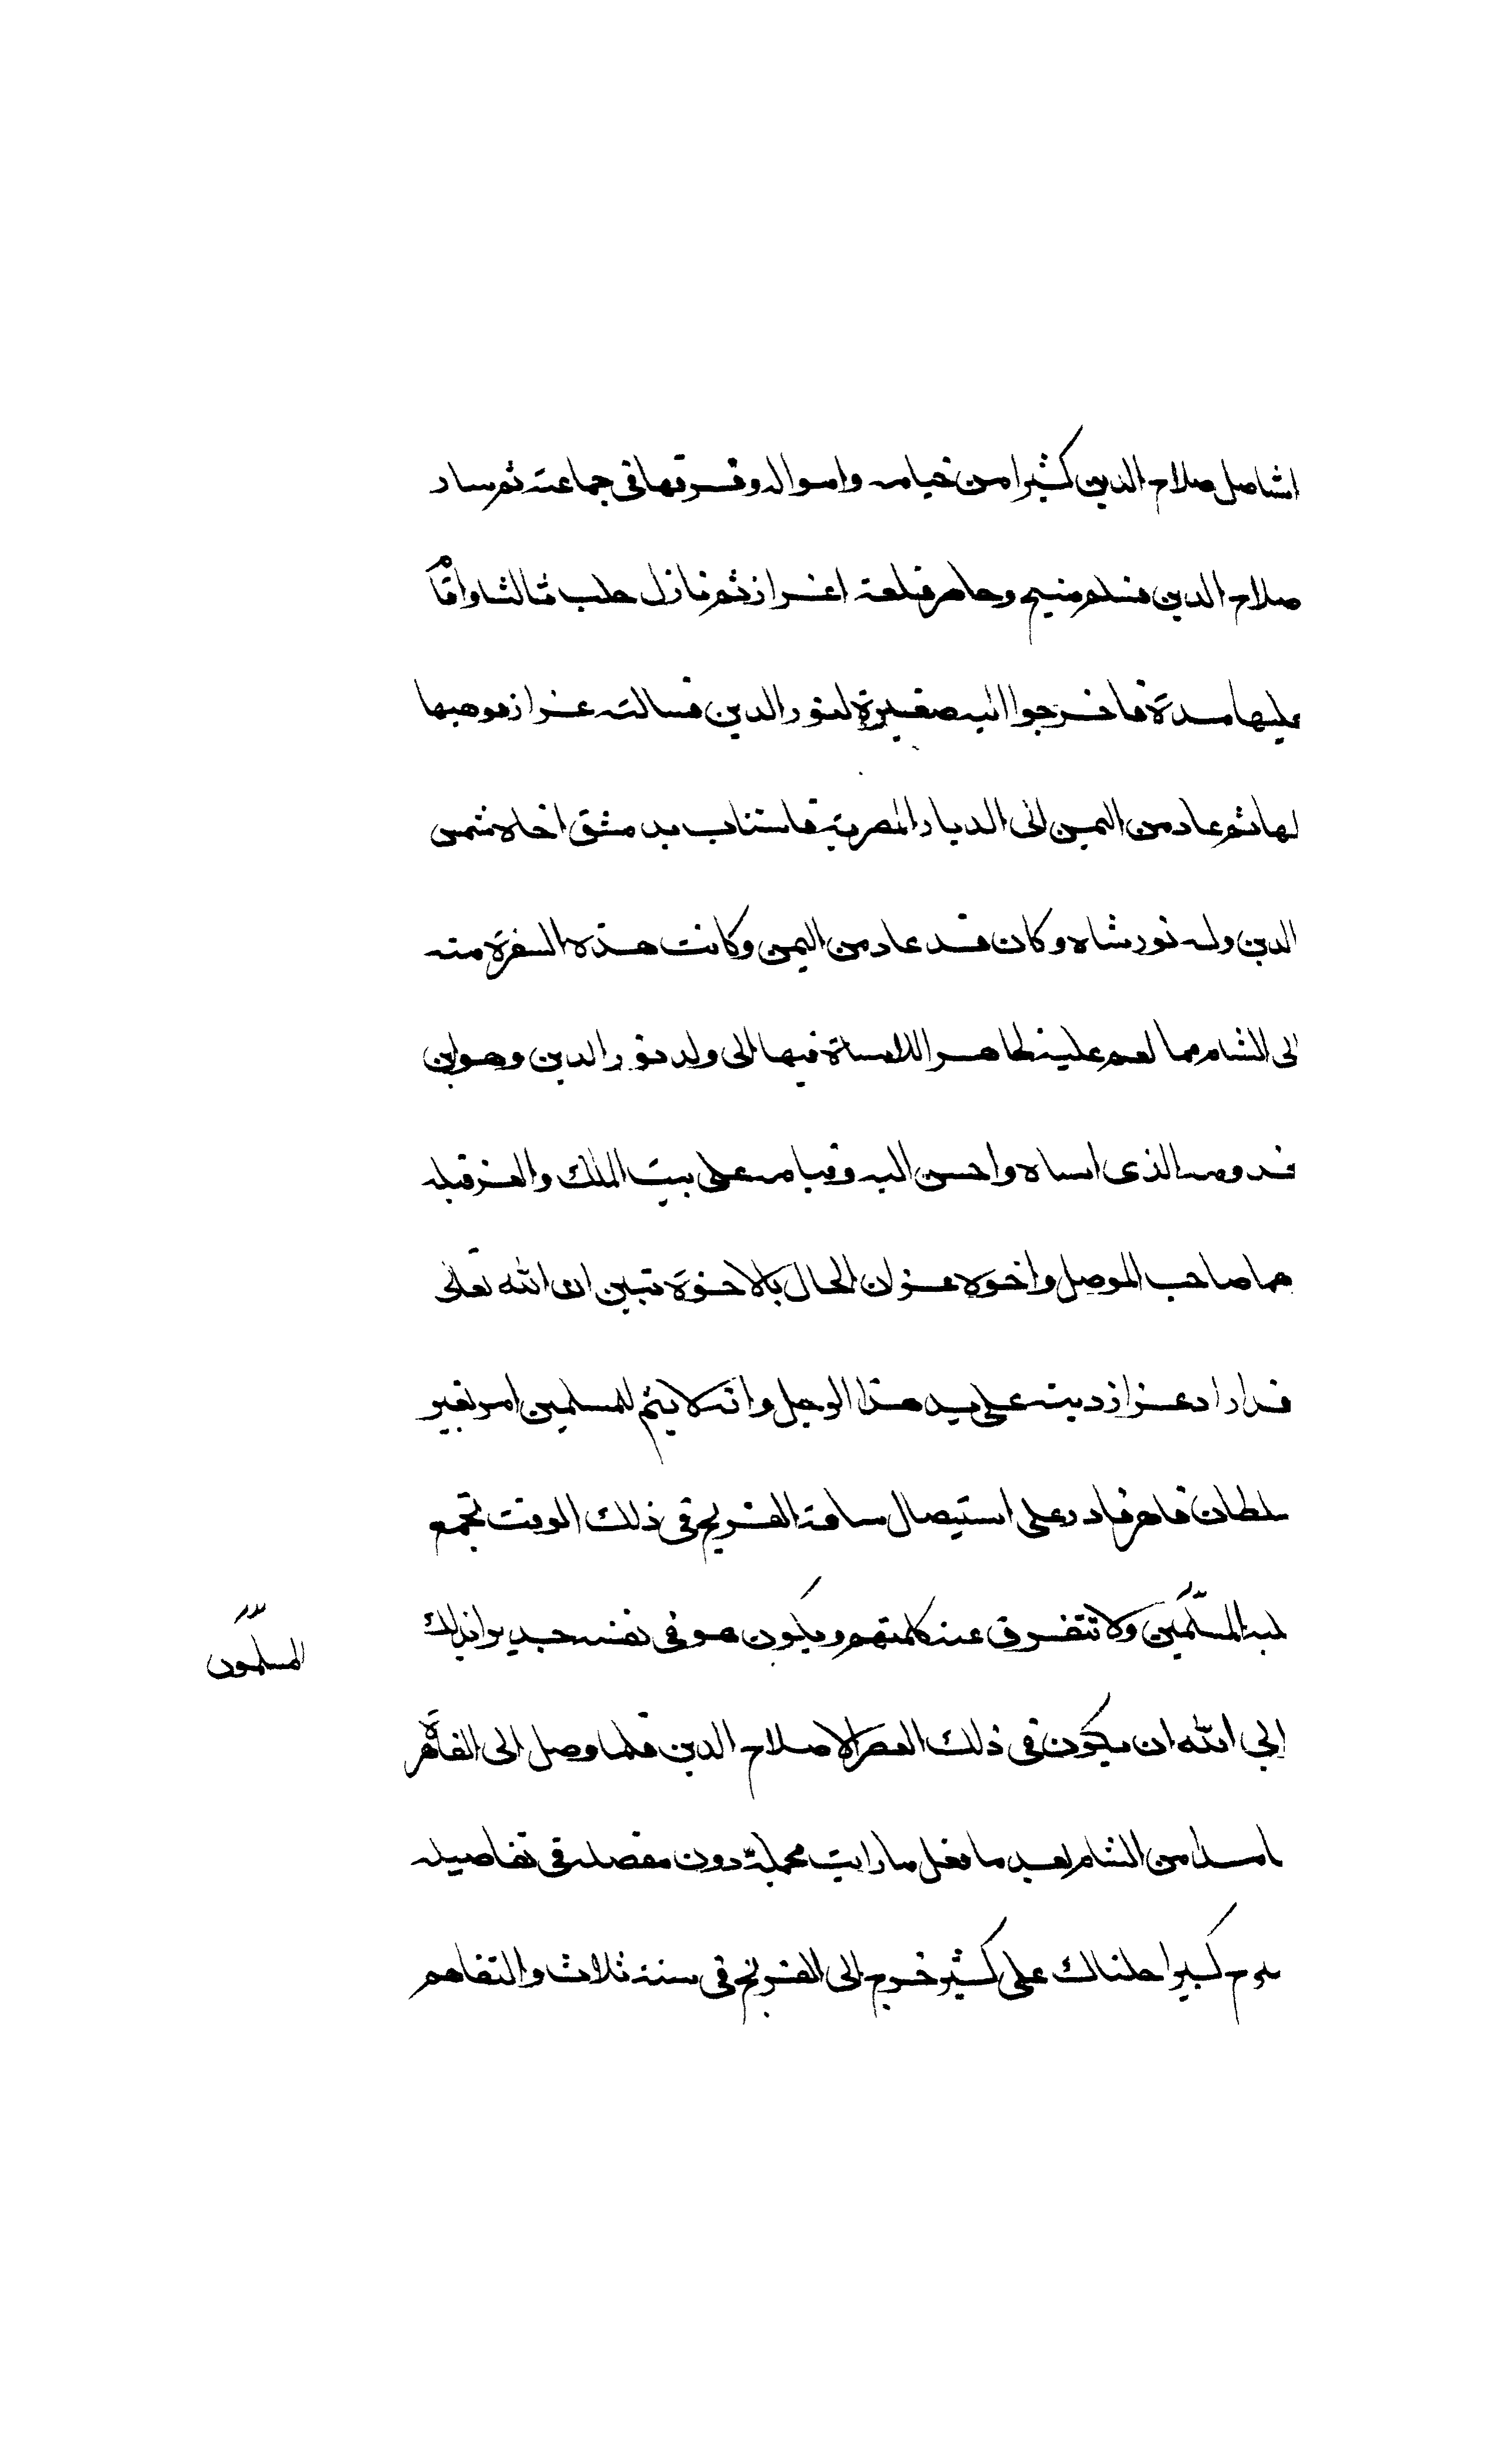 اشاصل صلاح الدين كثيرا من خيامه وامواله وفرقها فى جماعته ثم ساد
صلاح الدين فسلم منبج وحاصر قلعة اغزاز ثم نازل حلب ثالثا واقام
عليها مدة فاخرجوا اليه صغيرة لنور الدين فسالته عزاز فوهبها
لها ثم عاد من اليمن الى الديار المصرية فاستناب بدمشق اخاه شمس
الدين وله نور شاه وكان قد عاد من اليمن وكانت هذه السفرة منه
الى الشام مما لعم علينه لحاهر اللاساة فيها الى ولد نور الدين وهو ابن
الذى اساه واحسن اليه وقيامه على بيت الملك والغز قبله
هما صاحب الموصل واخوه عز ان الحال بالاخوة تبين ان الله تعالى
قد اراد عزاز دينه على يد هذا الرجل وانه لا يتم للمسلمين امر بغير
سلطان قاهر قادر على استيصال سافة الفريج فى ذلك الوقت تجمع
المسلمين ولا تتفرق عنه كلمتهم ويكون هو فى نفسه جديرا بذلك
المسلمون
الى الله ان يكون فى ذلك العصر الا صلاح الدين فلما وصل الى القاهرة
من الشام بعد ما فعل ما رايت مجملة دون مفصله فى تفاصيله
كبير احلناك على كثير خرج الى الفرنج فى سنة ثلاث والتقاهم